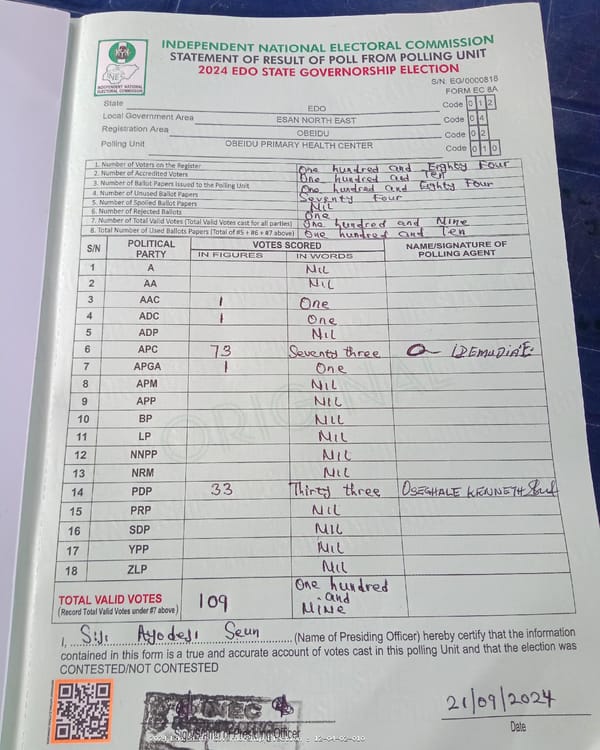 INDEPENDENT NATIONAL ELECTORAL COMMISSION
STATEMENT OF RESULT OF POLL FROM POLLING UNIT
2024 EDO STATE GOVERNORSHIP ELECTION
INEC
INDEPENDENT NATIONAL ELECTORAL COMMISSION
S/N: EG/0000818
FORM EC 8A
State EDO Code 0 1 2
Local Government Area ESAN NORTH EAST Code 0 4
Registration Area OBEIDU Code 0 2
Polling Unit OBEIDU PRIMARY HEALTH CENTER Code 0 1 0
1. Number of Voters on the Register One hundred and Eighty Four
2. Number of Accredited Voters One hundred and Ten
3. Number of Ballot Papers Issued to the Polling Unit One hundred and Eighty Four
4. Number of Unused Ballot Papers Seventy Four
5. Number of Spoiled Ballot Papers NIL
6. Number of Rejected Ballots One
7. Number of Total Valid Votes (Total Valid Votes cast for all parties) One hundred and Nine
8. Total Number of Used Ballots Papers (Total of #5 + #6 + #7 above) One hundred and Ten
S/N POLITICAL PARTY VOTES SCORED NAME/SIGNATURE OF POLLING AGENT
IN FIGURES IN WORDS
1 A NIL
2 AA NIL
3 AAC 1 One
4 ADC 1 One
5 ADP NIL
6 APC 73 Seventy three
7 APGA 1 One
8 APM NIL
9 APP NIL
10 BP NIL
11 LP NIL
12 NNPP NIL
13 NRM NIL
14 PDP 33 Thirty three OSEGHALE KENNETH
15 PRP NIL
16 SDP NIL
17 YPP NIL
18 ZLP NIL
TOTAL VALID VOTES 109 One hundred and NINE
(Record Total Valid Votes under #7 above)
ORIGINAL
I, Siji Ayodeji Seun (Name of Presiding Officer) hereby certify that the information
contained in this form is a true and accurate account of votes cast in this polling Unit and that the election was
CONTESTED/NOT CONTESTED
INEC
21/09/2024
Date